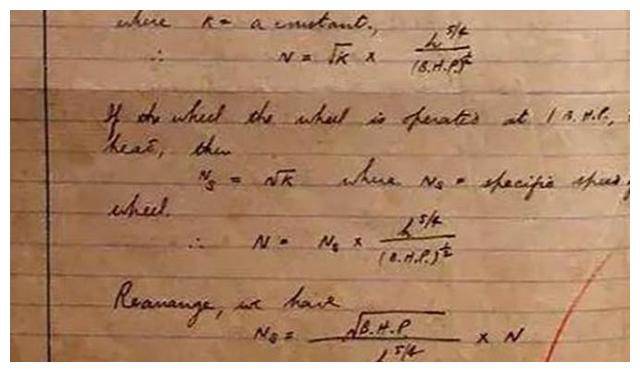 where K = a constant.,
∴ N = √K × h^5/4 / (B.H.P)^½
If the wheel the wheel is operated at 1 B.H.P.,
head, then
Ns = √K where Ns = specific speed
wheel.
∴ N = Ns × h^5/4 / (B.H.P.)^½
Rearrange, we have
Ns = √B.H.P / h^5/4 × N